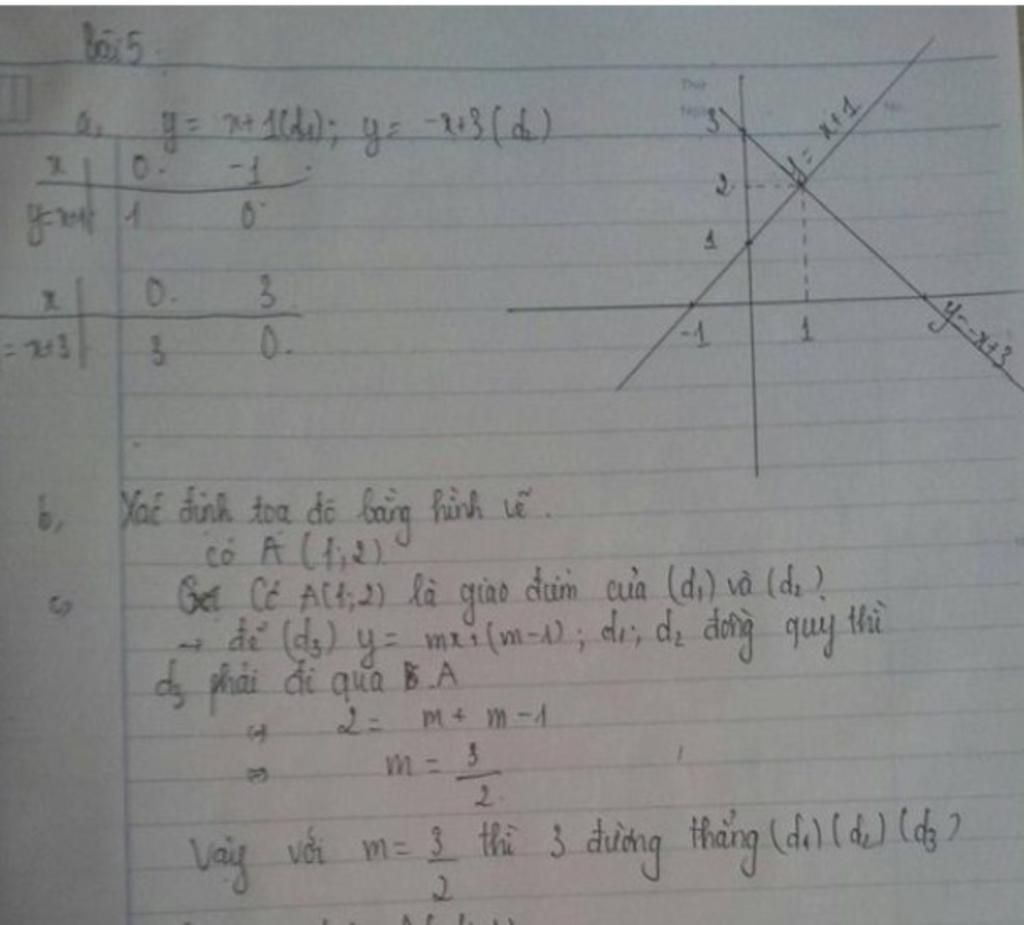 Bài 5.
a, y = x+1 (d₁); y = -x+3 (d₂)
x 0. -1
y=x+1 1 0
x 0. 3
=-x+3 3 0.
3
2
1
-1 1
y = x+1
y=-x+3
b, Xác định toạ độ bằng hình vẽ.
có A (1;2)
c, Có A(1;2) là giao điểm của (d₁) và (d₂)
→ để (d₃) y = mx+(m-1); d₁; d₂ đồng quy thì
d₃ phải đi qua A
⇔ 2 = m + m - 1
⇔ m = 3/2
Vậy với m = 3/2 thì 3 đường thẳng (d₁) (d₂) (d₃)